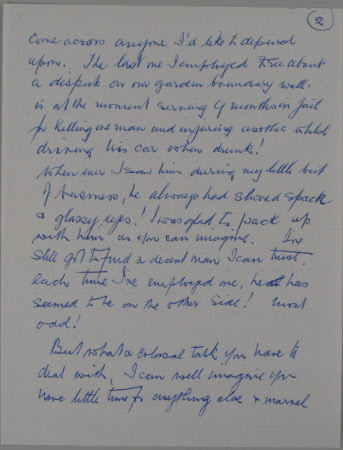 2
come across anyone I'd like to depend
upon. The last one I employed to see about
a dispute on our garden boundary wall.
is at the moment serving 9 months in jail
for killing one man and injuring another whilst
driving his car when drunk!
Whenever I saw him during my little bit
of business, he always had slurred speech
& glassy eyes! I was glad to pack up
with him as you can imagine. I've
still got to find a decent man I can trust.
each time I've employed one, he has
seemed to be on the other side! most
odd!
But what a colossal task you have to
deal with, I can well imagine you
have little time for anything else & marvel